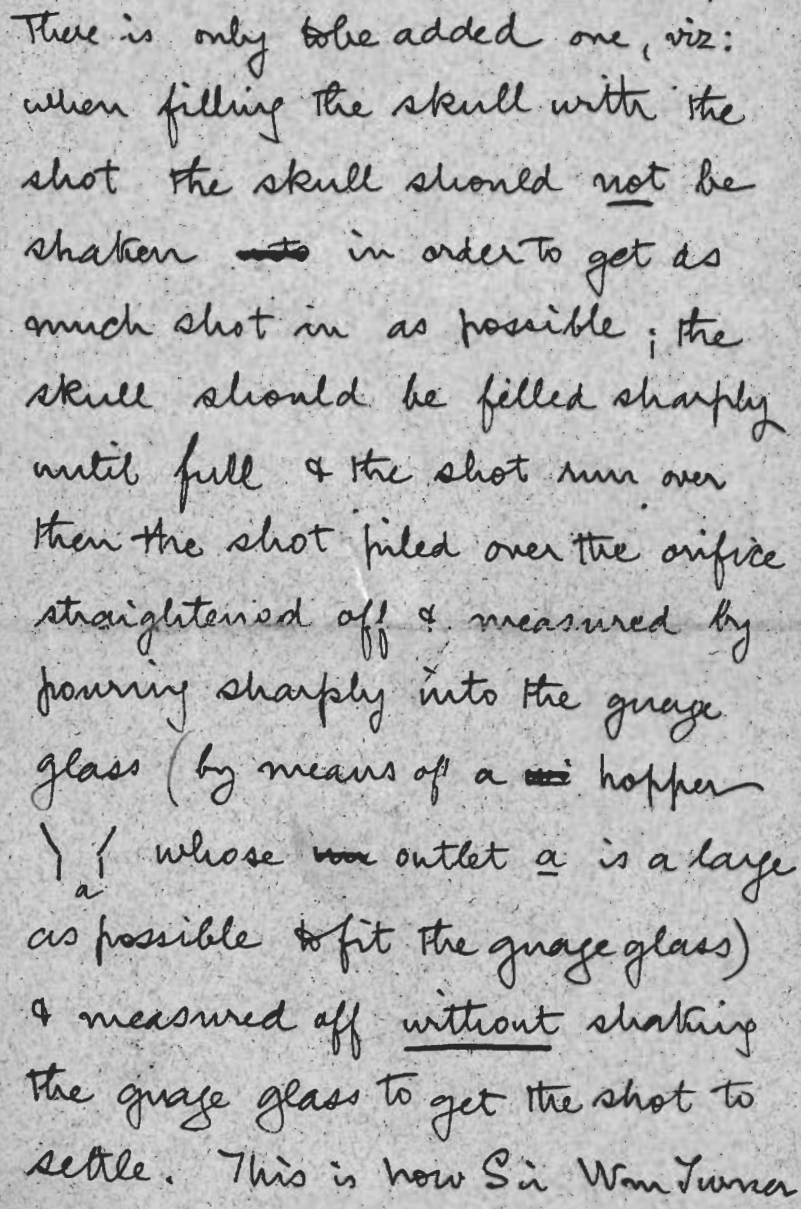 There is only to be added one, viz:
when filling the skull with the
shot the skull should not be
shaken in order to get as
much shot in as possible; the
skull should be filled sharply
until full & the shot run over
then the shot piled over the orifice
straightened off & measured by
pouring sharply into the guage
glass (by means of a hopper
a whose outlet a is a large
as possible to fit the guage glass)
& measured off without shaking
the guage glass to get the shot to
settle. This is how Sir Wm Turner